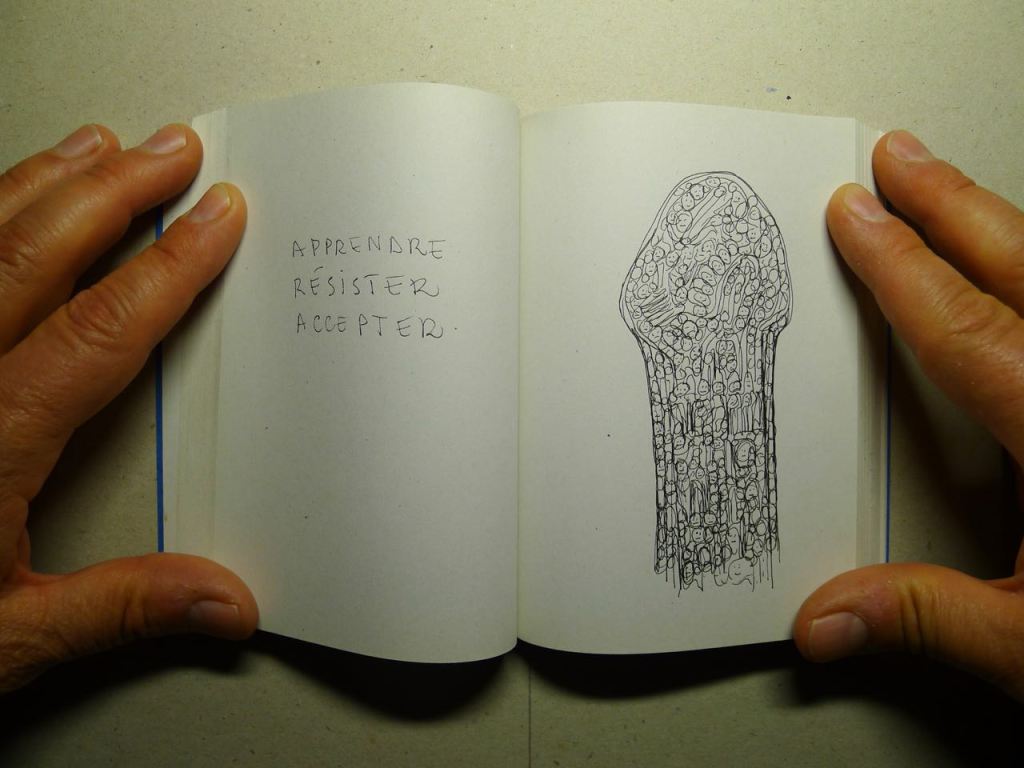 APPRENDRE
RÉSISTER
ACCEPTER.